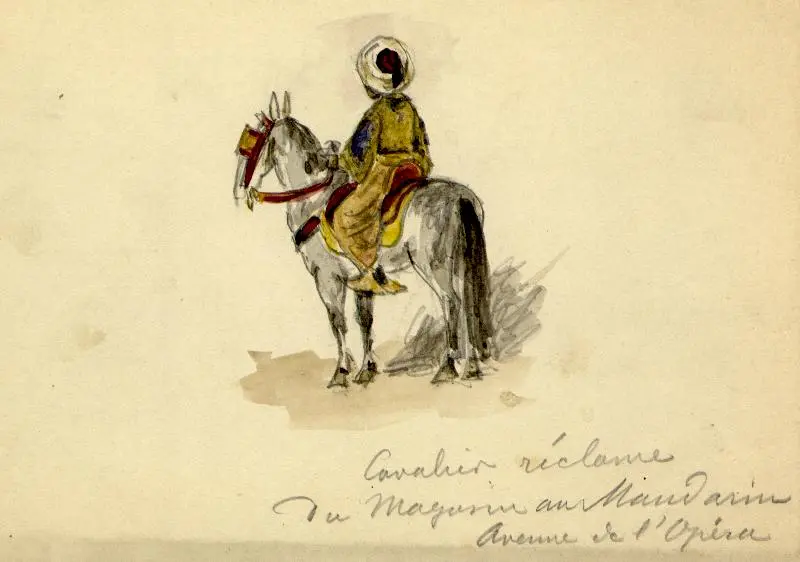 Cavalier réclame
Du Magasin au Mandarin
Avenue de l'Opéra